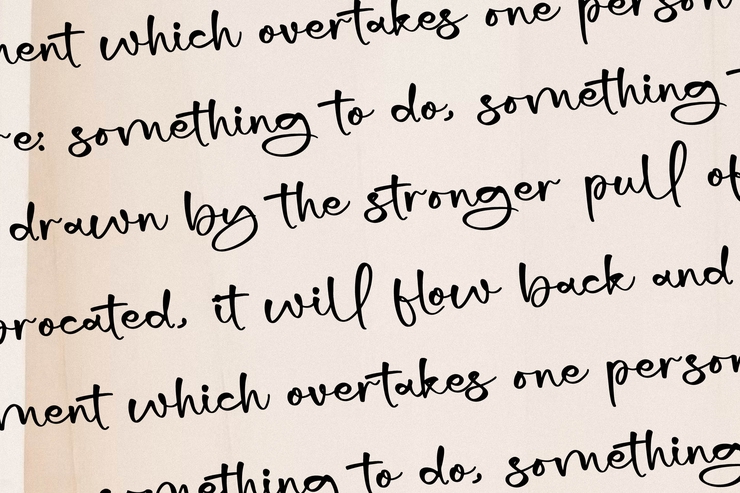 which overtakes one person
something to do, something
drawn by the stronger pull of
it will flow back and
which overtakes one person
something to do, something